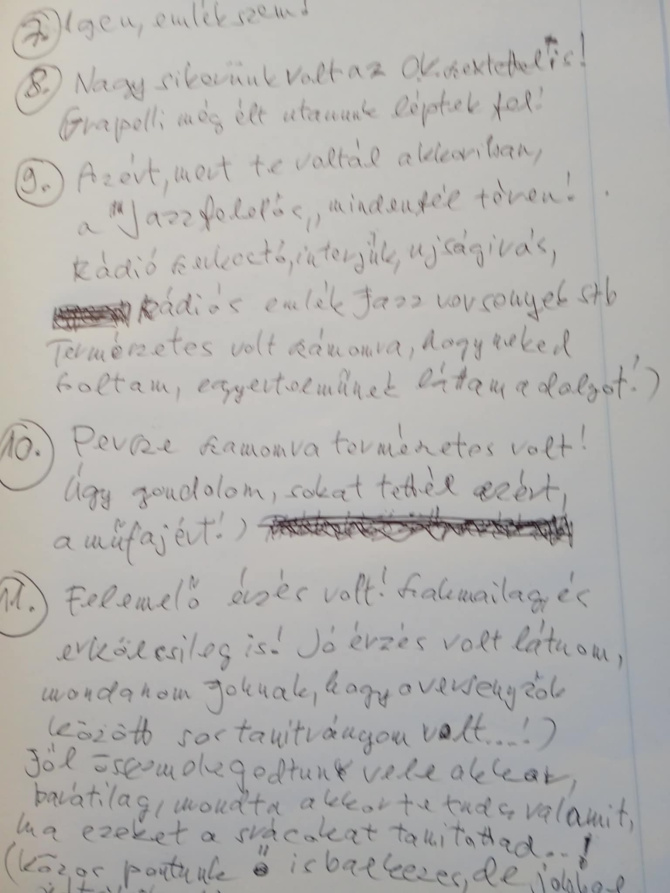 7. Igen, emlékszem!
8. Nagy sikerünk volt az OK. szextettel is!
Grapelli még élt utanunk léptek fel!
9. Azért, mert te voltál akkoriban,
a "Jazz felelős", mindenféle téren!
Rádió szerkesztő, interjúk, ujságirás,
Rádiós emlék Jazz versenyek stb
Természetes volt számomra, hogy neked
szoltam, egyertelműnek láttam a dolgot!)
10. Persze szamomra termémetes volt!
Úgy gondolom, sokat tettél azért,
a műfajért!)
11. Felemelő érzés volt! Szakmailag, és
erkölcsileg is! Jó érzés volt látnom,
mondanom Joknak, hogy a versenyzők
között sok tanitványom volt...!)
Jól összemelegedtunk vele akkor,
barátilag, mondta akkor te tudsz valamit,
ha ezeket a srácokat tanitottad..!
(Közös pontunk ő is balkezes, de